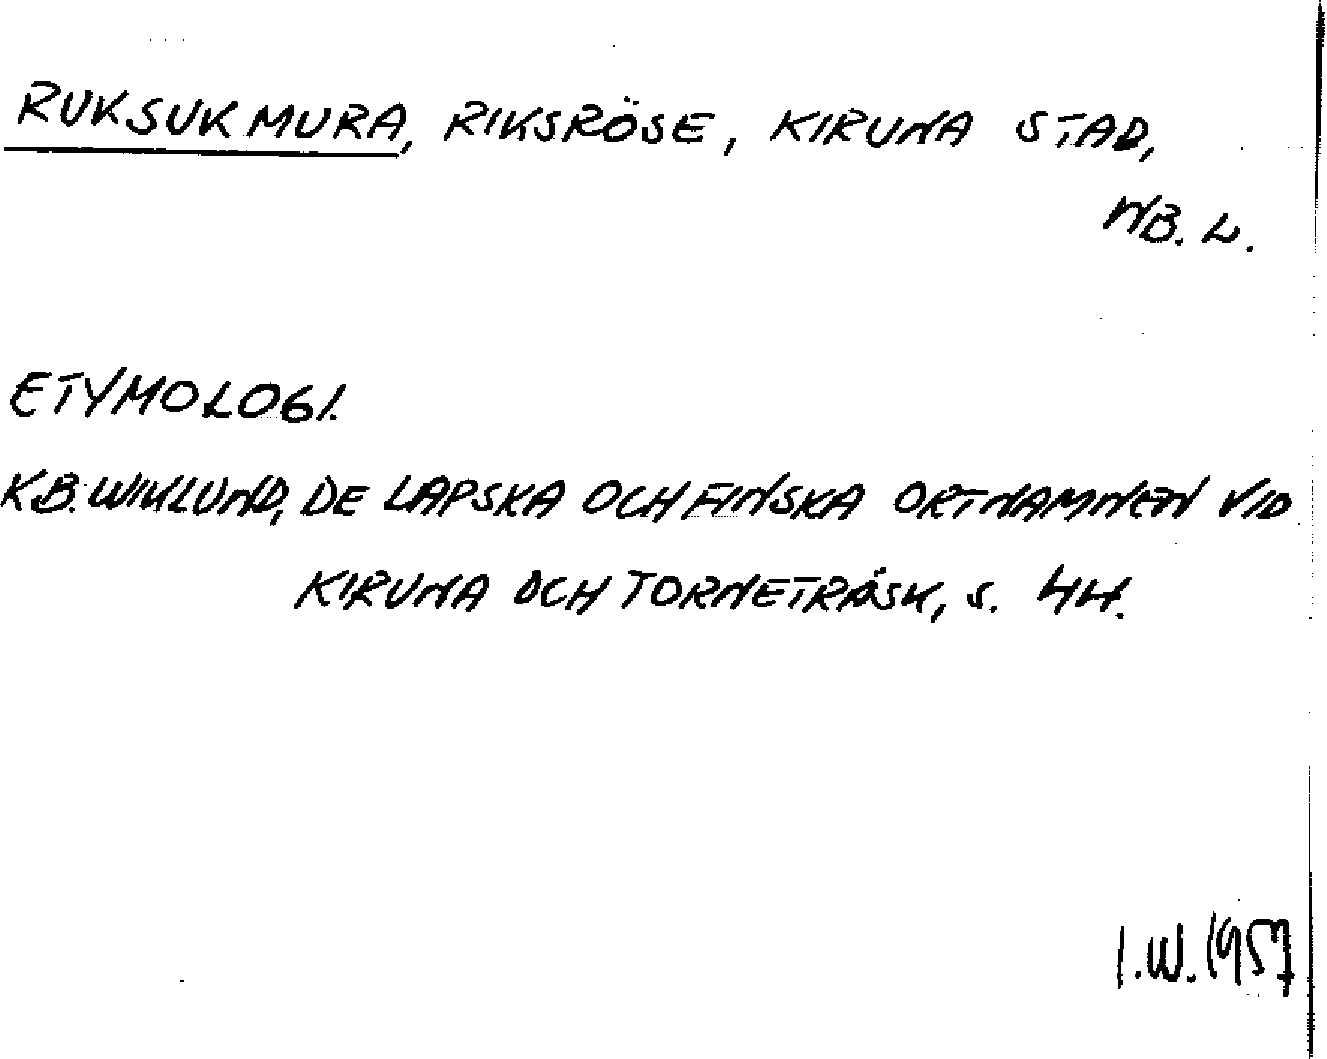 RUKSUKMURA, RIKSRÖSE, KIRUNA STAD,
NB. L.
ETYMOLOGI.
KB. WIKLUND, DE LAPSKA OCH FINSKA ORTNAMNEN VID
KIRUNA OCH TORNETRÄSK, S. 44.
I.W. 1957